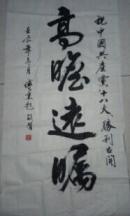 祝中國共產黨十八大勝利召開
高瞻遠矚
壬辰年